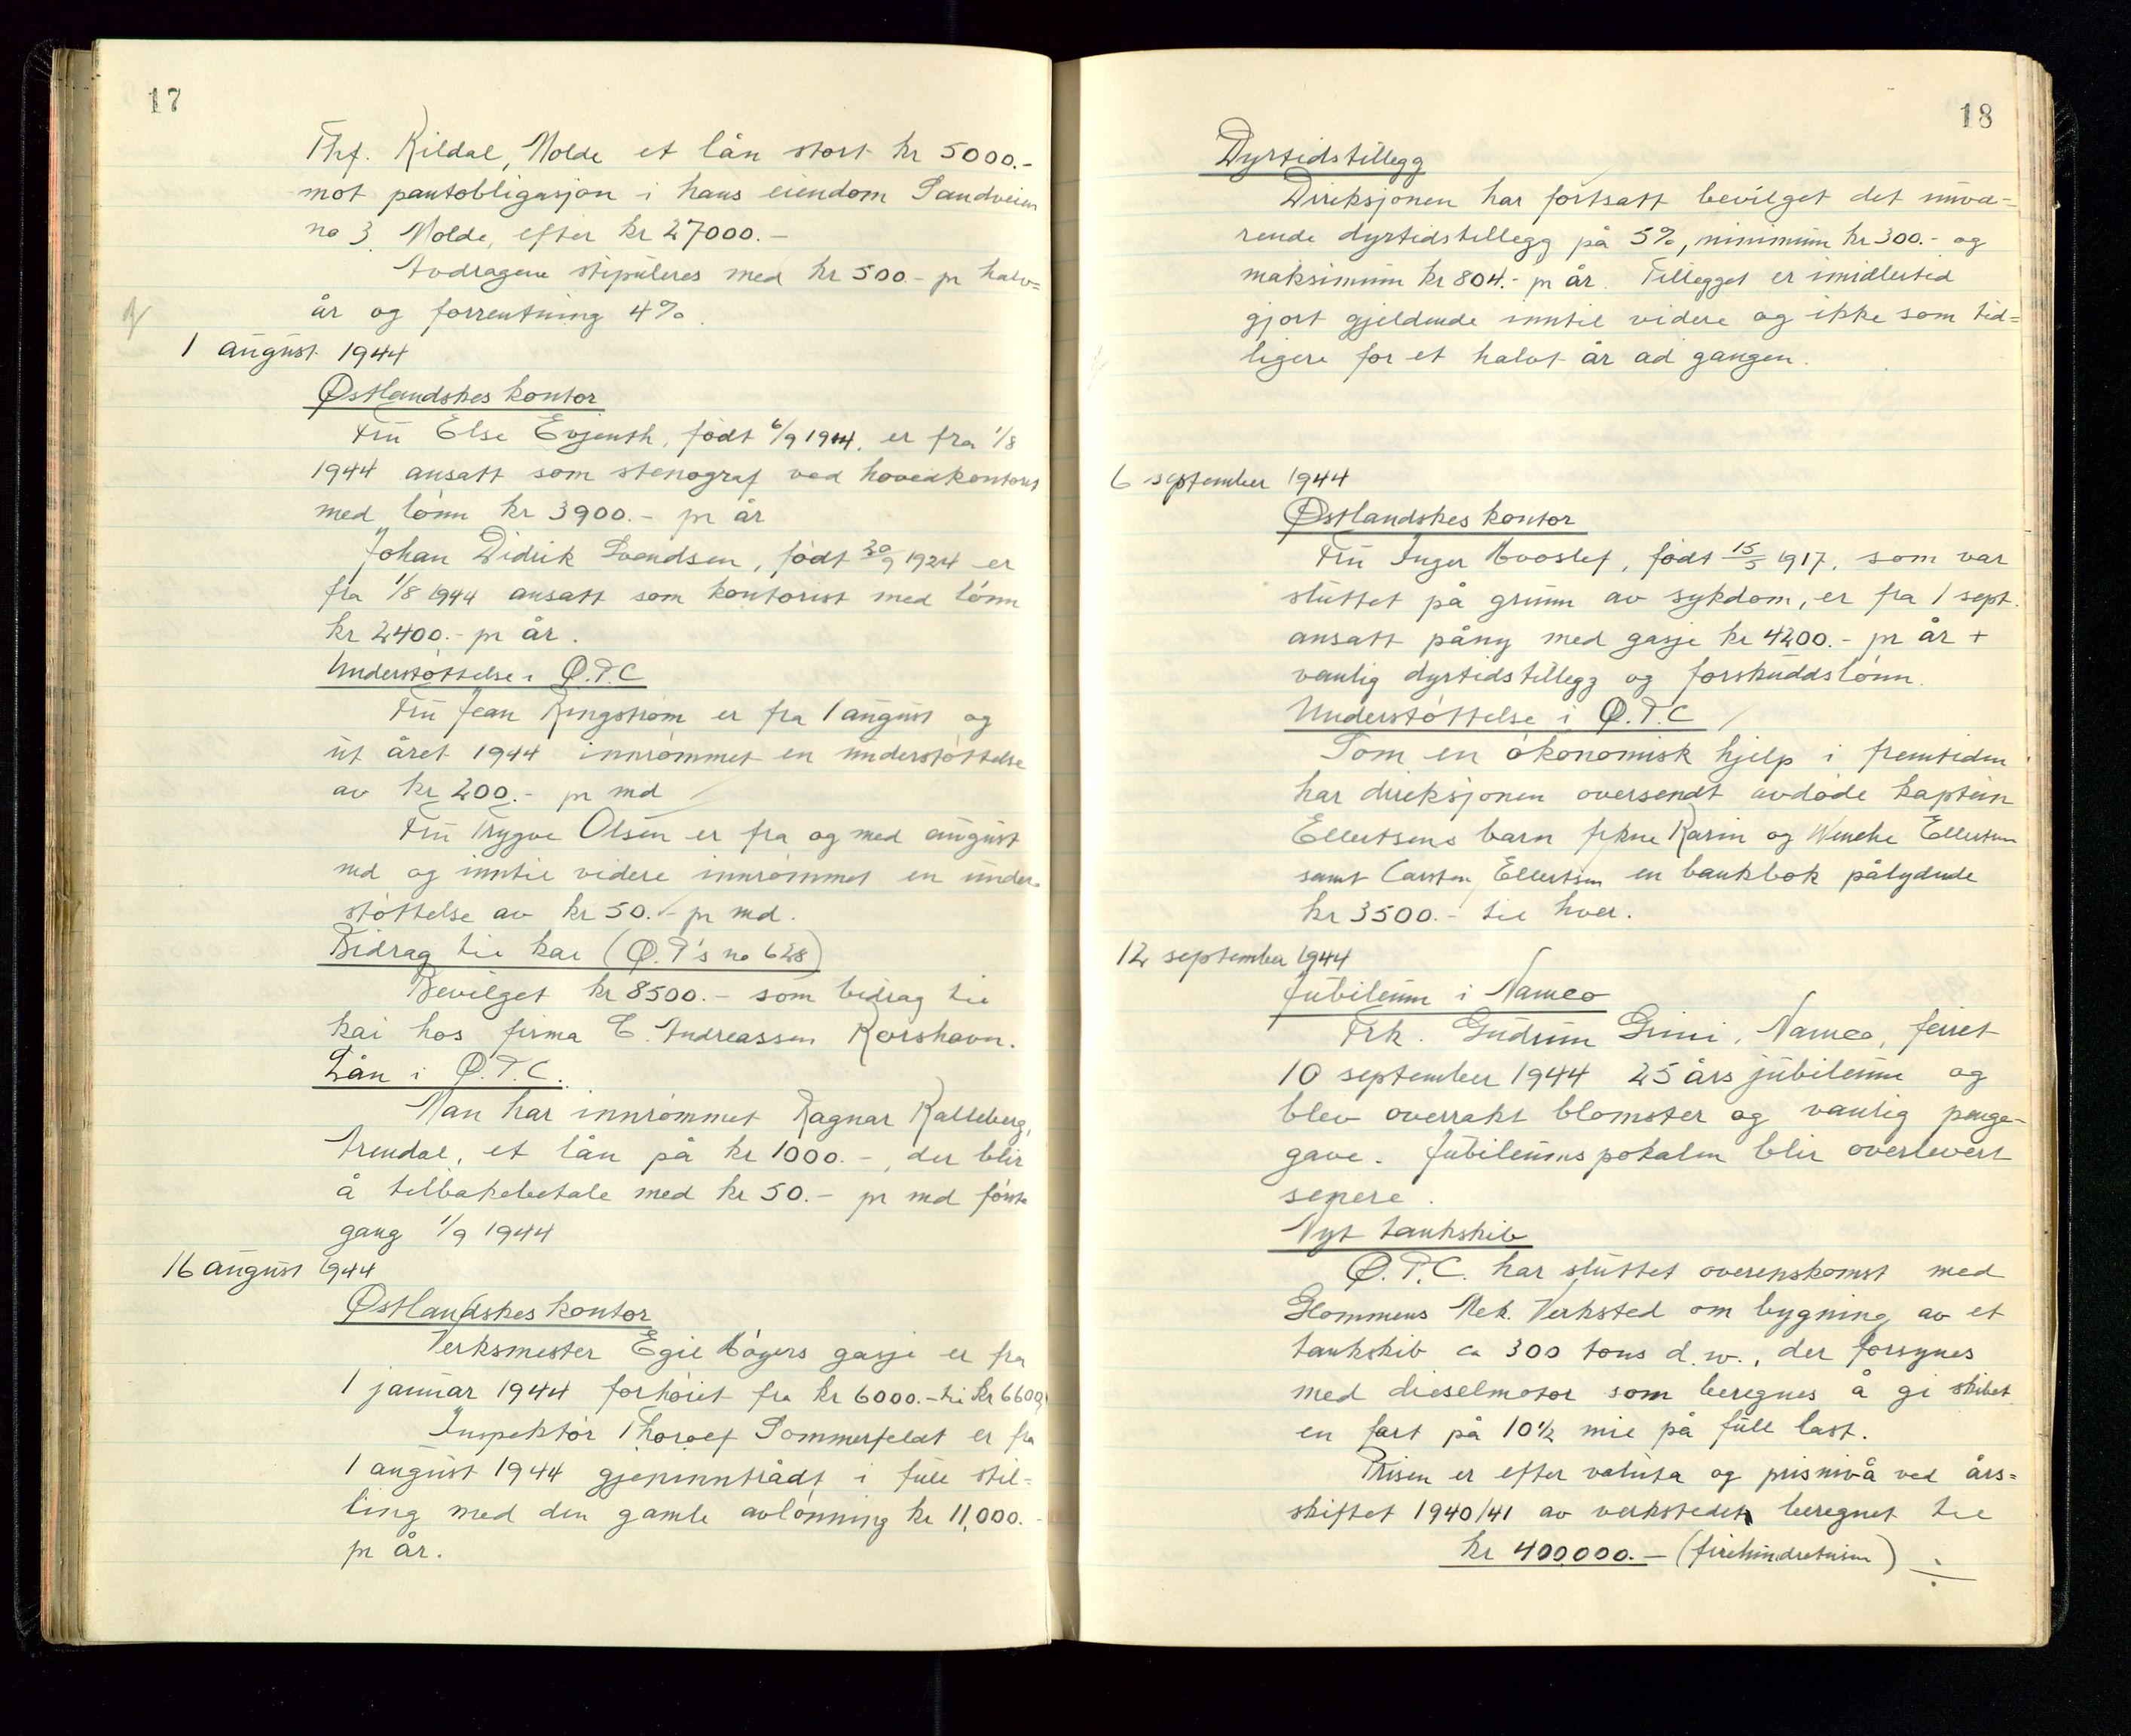 17
Thf. Kildal, Molde et lån stort kr 5000.-
mot pantobligasjon i hans eiendom Sandveien
no 3 Molde, efter kr 27000.-
Avdragene stipuleres med kr 500.- pr halv=
år og forrentning 4%.
1 august 1944
Østlandskes kontor
Fru Else Evjenth, født 6/9 1914, er fra 1/8
1944 ansatt som stenograf ved hovedkontoret
med lønn kr 3900.- pr år
Johan Didrik Svendsen, født 30/9 1924 er
fra 1/8 1944 ansatt som kontorist med lønn
kr 2400.- pr år.
Understøttelse i Ø.P.C
Fru Jean Ringstrøm er fra 1 august og
ut året 1944 innrømmet en understøttelse
av kr 200.- pr md
Fru Trygve Olsen er fra og med august
md og inntil videre innrømmet en under-
støttelse av kr 50.- pr md.
Bidrag til kai (Ø.P's no 628)
Bevilget kr 8500.- som bidrag til
kai hos firma C. Andreassen Korshavn.
Lån i Ø.P.C.
Man har innrømmet Ragnar Kalleberg,
Arendal, et lån på kr 1000.-, der blir
å tilbakebetale med kr 50.- pr md første
gang 1/9 1944
16 august 1944
Østlandskes kontor
Verksmester Egil Høyers gasje er fra
1 januar 1944 forhøiet fra kr 6000.- til kr 6600.
Inspektør Thoralf Sommerfeldt er fra
1 august 1944 gjeninntrådt i full stil=
ling med den gamle avlønning kr 11,000.-
pr år.
18
Dyrtidstillegg
Direksjonen har fortsatt bevilget det nuvæ=
rende dyrtidstillegg på 5%, minimum kr 300.- og
maksimum kr 804.- pr år. Tillegget er imidlertid
gjort gjeldende inntil videre og ikke som tid=
ligere for et halvt år ad gangen.
6 september 1944
Østlandskes kontor
Fru Inger Hvoslef, født 15/5 1917, som var
sluttet på grunn av sykdom, er fra 1 sept.
ansatt påny med gasje kr 4200.- pr år +
vanlig dyrtidstillegg og forskuddslønn.
Understøttelse i Ø.P.C
Som en økonomisk hjelp i fremtiden
har direksjonen oversendt avdøde kaptein
Ellertsens barn frkne Karin og Wenche Ellertsen
samt Carsten Ellertsen en bankbok pålydende
kr 3500.- til hver.
12 september 1944
Jubileum i Namco
Frk. Gudrun Grini, Namco, feiret
10 september 1944 25 års jubileum og
blev overrakt blomster og vanlig penge-
gave. Jubileumspokalen blir overlevert
senere.
Nyt tankskib
Ø.P.C. har sluttet overenskomst med
Glommens Mek. Verksted om bygning av et
tankskib ca 300 tons d.w., der forsynes
med dieselmotor som beregnes å gi skibet
en fart på 10½ mil på full last.
Prisen er efter valuta og prisnivå ved års=
skiftet 1940/41 av verkstedet beregnet til
kr 400.000.- (firehundretusen)